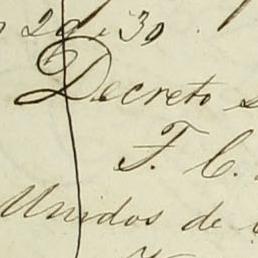 29 i 30
Decreto
F. C.
Unidos de